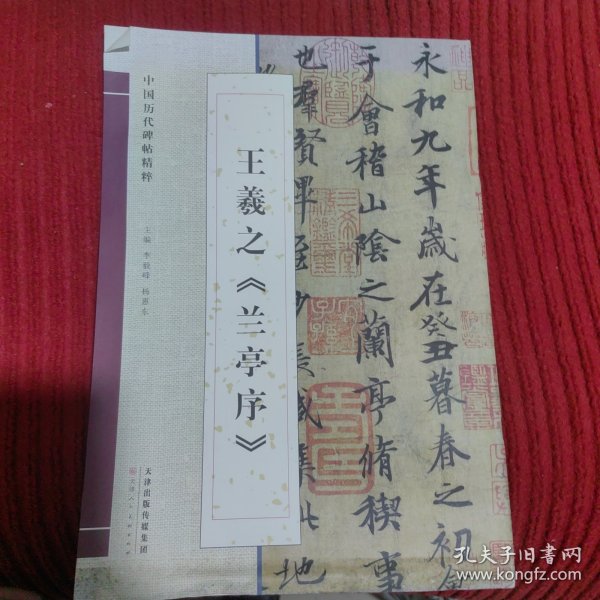 中国历代碑帖精粹
主编 李骏峰 杨惠东
王羲之《兰亭序》
天津出版传媒集团
天津人民美术出版社
永和九年歲在癸丑暮春之初
于會稽山陰之蘭亭脩稧事
也羣賢畢至少長咸集此地
孔夫子旧书网
www.kongfz.com